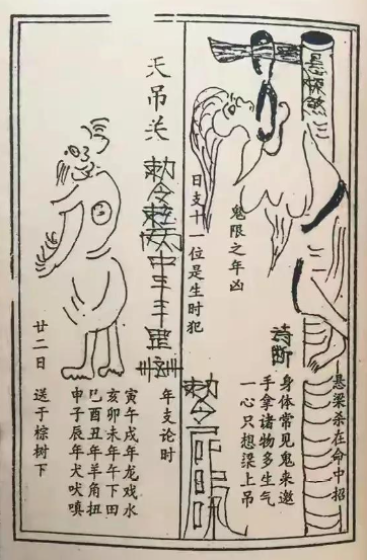 鬼限之年凶
日支十一位是生时犯
诗断
悬梁杀在命中招
身体常见鬼来邀
手拿诸物多生气
一心只想梁上吊
敕令
天吊关
敕令
年支论时
寅午戌年龙戏水
亥卯未年午下田
巳酉丑年羊角扭
申子辰年犬吠嗔
廿二日 送于棕树下